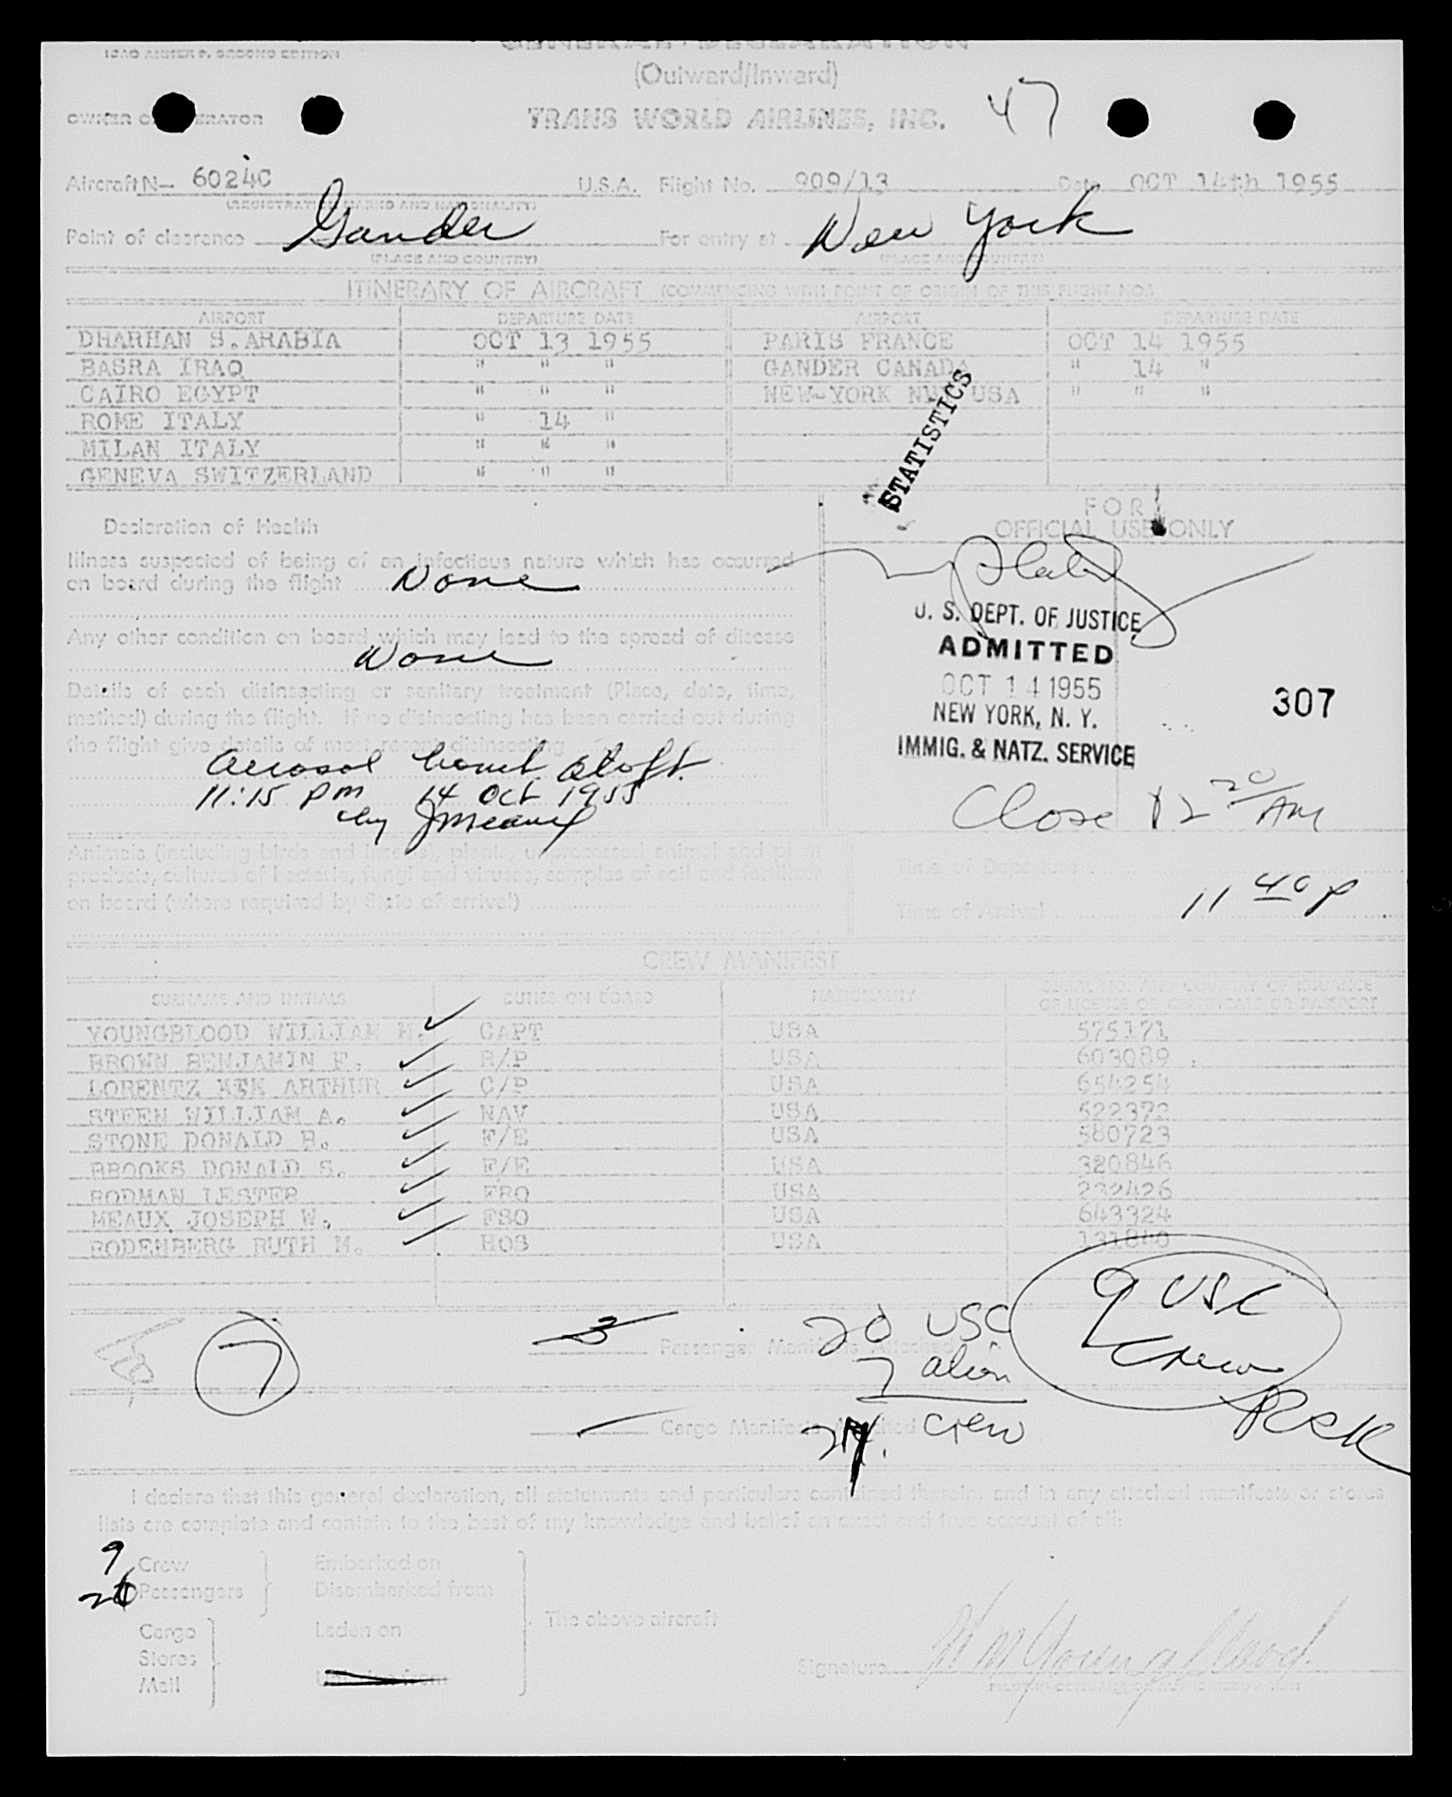 ICAO ANNEX 9, SECOND EDITION
GENERAL DECLARATION
(Outward/Inward)
OWNER OR OPERATOR TRANS WORLD AIRLINES, INC. 47
Aircraft N— 6024C U.S.A. Flight No. 909/13 Date OCT 14th 1955
(REGISTRATION MARKS AND NATIONALITY)
Point of clearance Gander For entry at New York
(PLACE AND COUNTRY) (PLACE AND COUNTRY)
ITINERARY OF AIRCRAFT (COMMENCING WITH POINT OF ORIGIN OF THIS FLIGHT NO.)
AIRPORT DEPARTURE DATE AIRPORT DEPARTURE DATE
DHARHAN S.ARABIA OCT 13 1955 PARIS FRANCE OCT 14 1955
BASRA IRAQ " " " GANDER CANADA " 14 "
CAIRO EGYPT " " " NEW-YORK NY USA " " "
ROME ITALY " 14 "
MILAN ITALY " " "
GENEVA SWITZERLAND " " "
STATISTICS
FOR
OFFICIAL USE ONLY
Declaration of Health
Illness suspected of being of an infectious nature which has occurred
on board during the flight None
Any other condition on board which may lead to the spread of disease
None
Details of each disinsecting or sanitary treatment (Place, date, time,
method) during the flight. If no disinsecting has been carried out during
the flight give details of most recent disinsecting
Aerosol bomb aloft.
11:15 pm 14 Oct 1955
by JMeaux
U. S. DEPT. OF JUSTICE
ADMITTED
OCT 14 1955
NEW YORK, N. Y.
IMMIG. & NATZ. SERVICE
307
Close 12 20/AM
Animals (including birds and insects), plants, unprocessed animal and plant
products, cultures of bacteria, fungi and viruses, samples of soil and fertilizer
on board (where required by State of arrival)
Time of Departure
Time of Arrival 11 40 P
CREW MANIFEST
SURNAME AND INITIALS DUTIES ON BOARD NATIONALITY SERIAL NO. AND COUNTRY OF ISSUANCE
OF LICENSE OR CERTIFICATE OR PASSPORT
YOUNGBLOOD WILLIAM H. CAPT USA 575171
BROWN BENJAMIN F. R/P USA 603089
LORENTZ KEK ARTHUR C/P USA 654254
STEEN WILLIAM A. NAV USA 522372
STONE DONALD B. F/E USA 580723
BROOKS DONALD S. F/E USA 320846
RODMAN LESTER FRO USA 232426
MEAUX JOSEPH W. FSO USA 643324
RODENBERG RUTH M. HOS USA 131840
7
3 Passenger Manifests Attached
20 USC
7 alien
crew
9 USC
Crew
RCK
Cargo Manifests Attached
I declare that this general declaration, all statements and particulars contained therein, and in any attached manifests or stores
lists are complete and contain to the best of my knowledge and belief an exact and true account of all:
9 Crew Embarked on
Passengers Disembarked from
The above aircraft
Cargo Laden on
Stores
Mail Unladen from
Signature Wm Youngblood